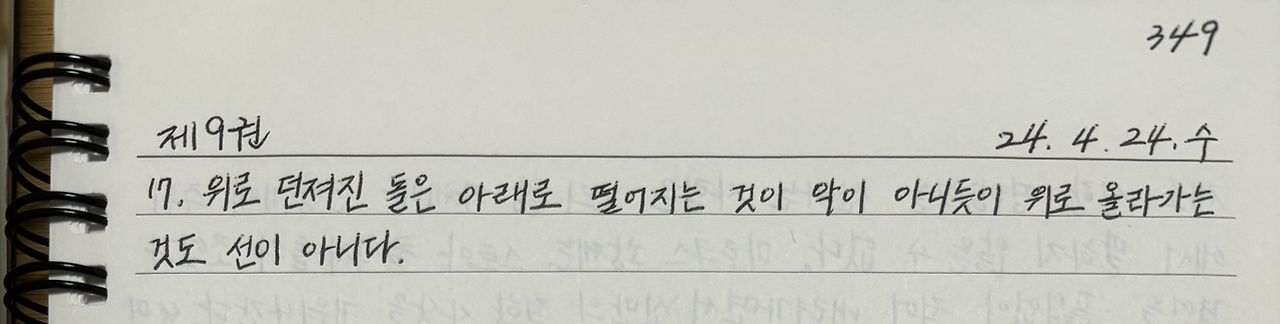 349
제9권 24. 4. 24. 수
17. 위로 던져진 돌은 아래로 떨어지는 것이 악이 아니듯이 위로 올라가는
것도 선이 아니다.